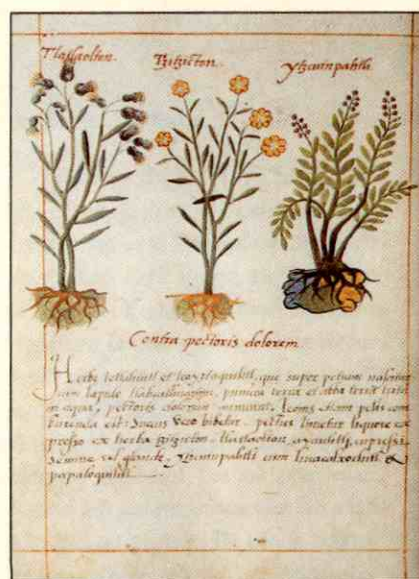 Tlaçaolton. Tzitzicton. Ytzcuinpahtli.
Contra pectoris dolorem
Herbe tetlahuitl et teoyztaquilitl, que super petram nascun
tur cum lapide tlahcalhuatzin, punicea terra et alba terra tritis
in aqua, pectoris dolorem minuunt.
est. Succus vero bibetur. pectus linitur liquore ex
presso ex herba tzitzicton, tlatlaolton, ayauhtli, cupressi
semine vel glande. ytzcuinpahtli cum huacalxochitl &
papaloquilitl.